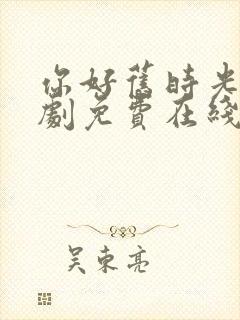 你好舊時光
劇免費在綫
吳東亮